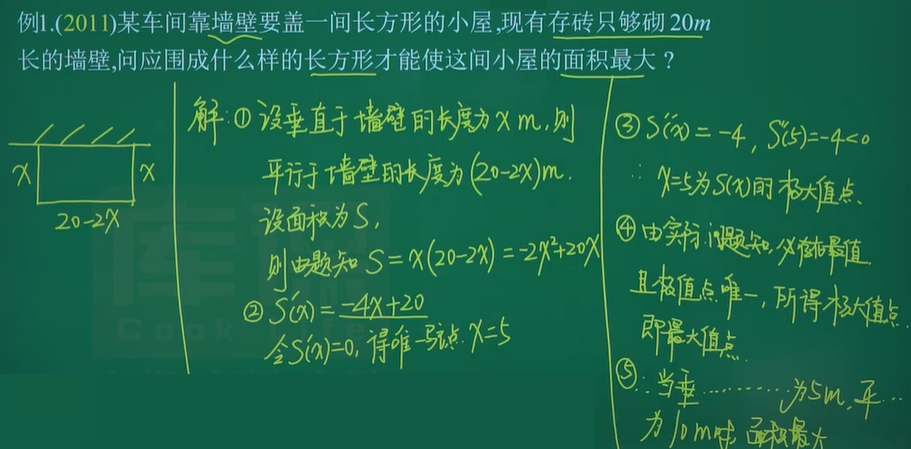 例1.(2011)某车间靠墙壁要盖一间长方形的小屋,现有存砖只够砌20m
长的墙壁,问应围成什么样的长方形才能使这间小屋的面积最大？
x
x
20-2x
解:①设垂直于墙壁的长度为x m,则
平行于墙壁的长度为(20-2x)m.
设面积为S,
则由题知 S=x(20-2x)=-2x²+20x
②S'(x)=-4x+20
令S'(x)=0,得唯一驻点 x=5
③S''(x)=-4, S''(5)=-4<0
∴ x=5为S(x)的极大值点.
④由实际问题知,必存在最值.
且极值点唯一,所得极大值点
即最大值点.
⑤∴当垂……为5m,平…
为10m时,面积最大
库课
Cook